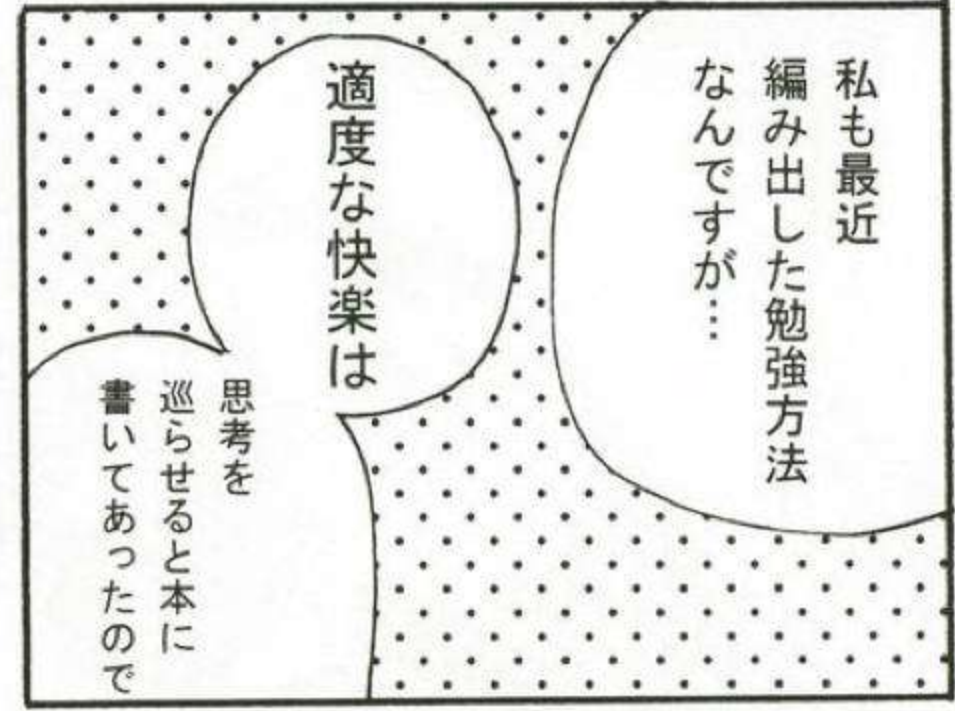 私も最近
編み出した勉強方法
なんですが…
適度な快楽は
思考を
巡らせると本に
書いてあったので